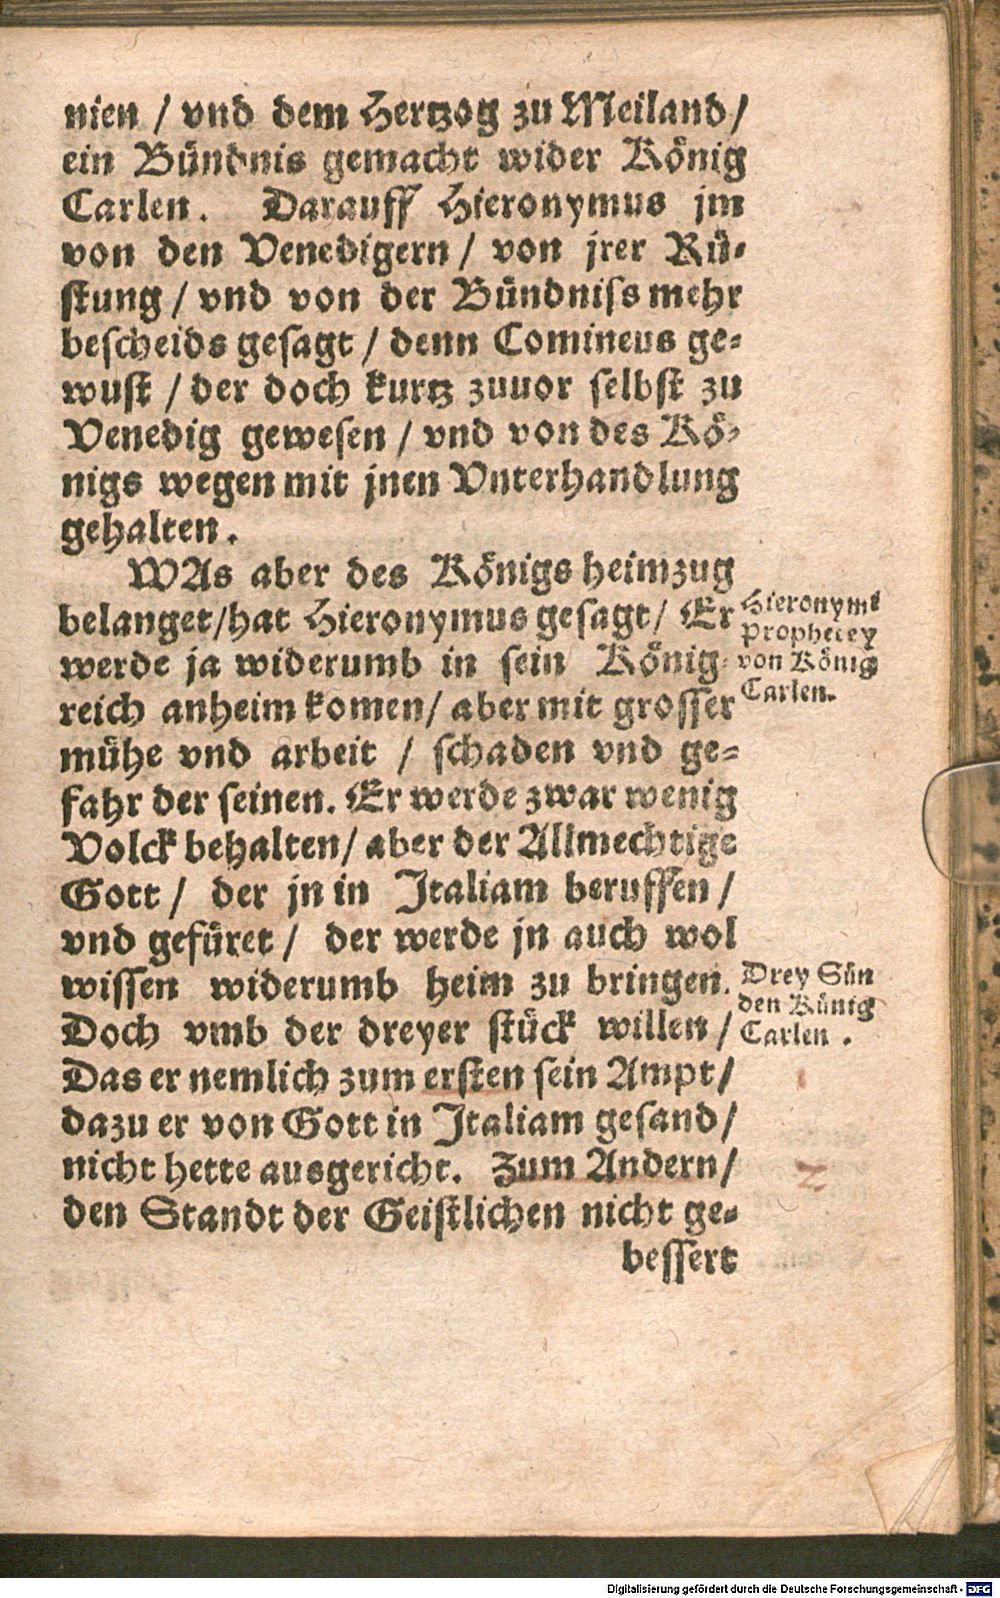 nien / vnd dem Hertzog zu Meiland /
ein Bündnis gemacht wider König
Carlen. Darauff Hieronymus jm
von den Venedigern / von jrer Rü-
stung / vnd von der Bündniss mehr
bescheids gesagt / denn Comineus ge-
wust / der doch kurtz zuuor selbst zu
Venedig gewesen / vnd von des Kö-
nigs wegen mit jnen Vnterhandlung
gehalten.
WAs aber des Königs heimzug
belanget / hat Hieronymus gesagt / Er
werde ja widerumb in sein König-
reich anheim komen / aber mit grosser
mühe vnd arbeit / schaden vnd ge-
fahr der seinen. Er werde zwar wenig
Volck behalten / aber der Allmechtige
Gott / der jn in Italiam beruffen /
vnd gefüret / der werde jn auch wol
wissen widerumb heim zu bringen.
Doch vmb der dreyer stück willen /
Das er nemlich zum ersten sein Ampt /
dazu er von Gott in Italiam gesand /
nicht hette ausgericht. Zum Andern /
den Standt der Geistlichen nicht ge-
bessert
Hieronymi
Prophecey
von König
Carlen.
Drey Sün
den König
Carlen.
1
2
Digitalisierung gefördert durch die Deutsche Forschungsgemeinschaft - DFG